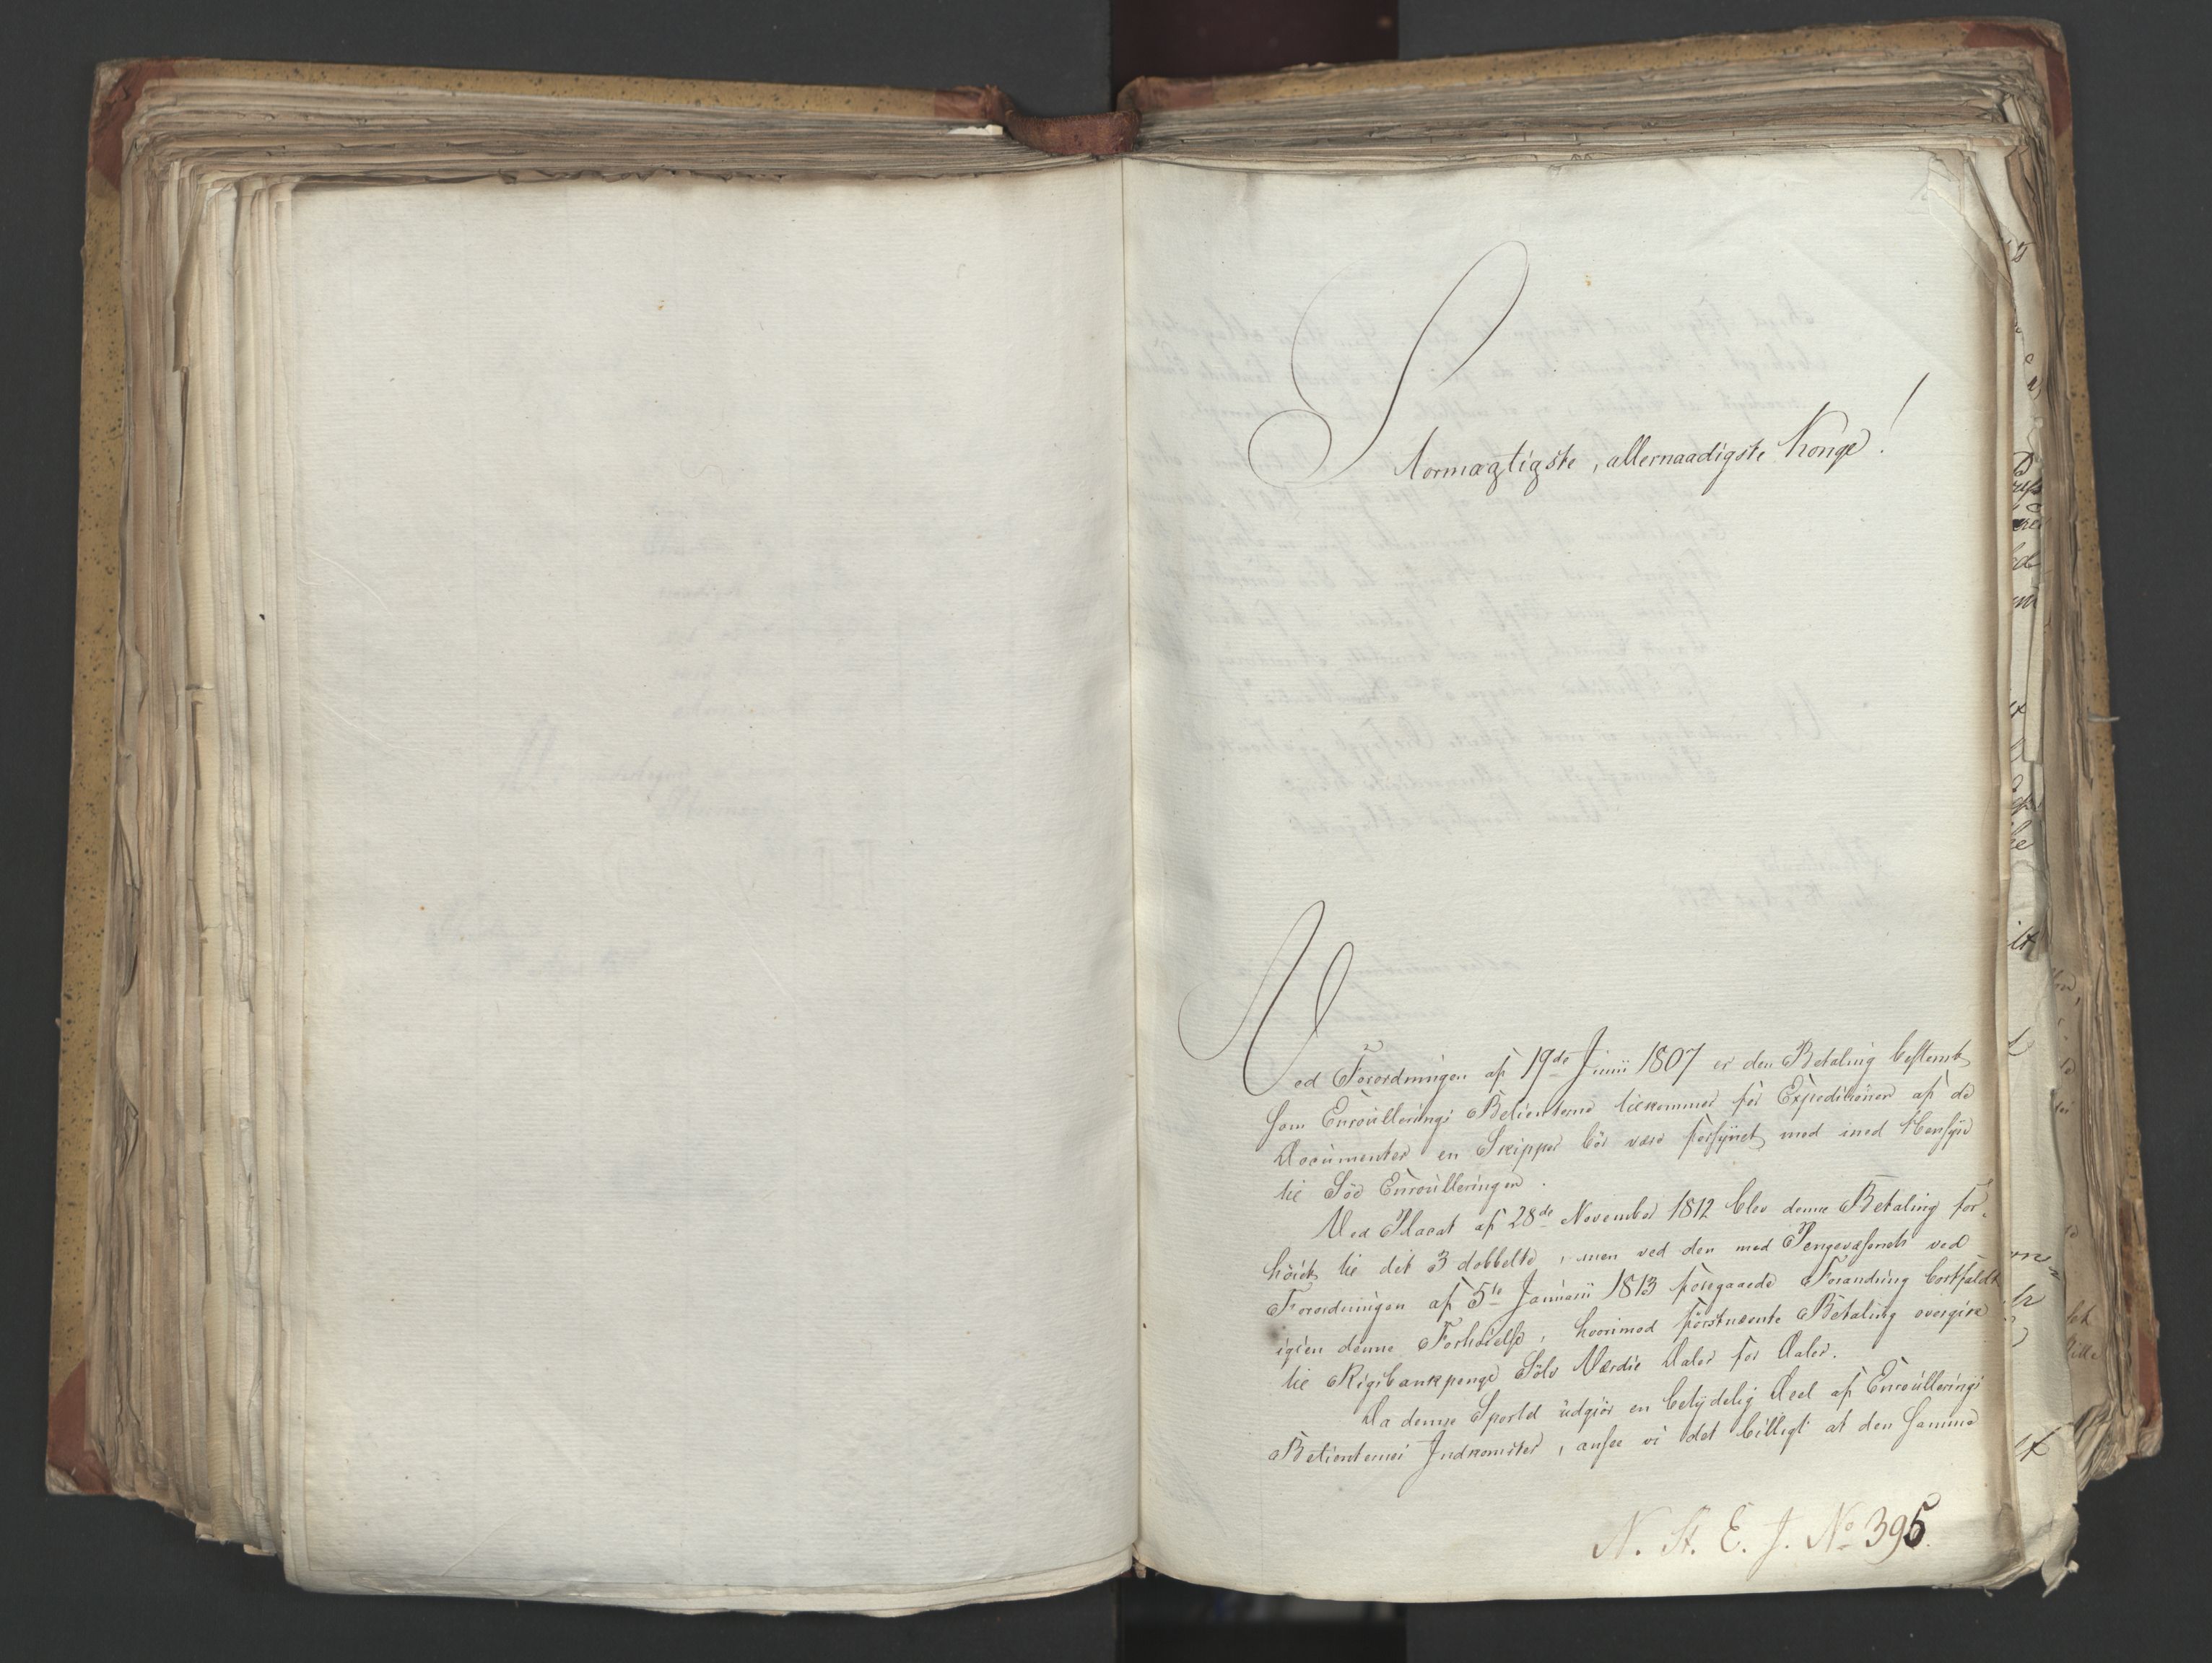 Stormægtigste, allernaadigste Konge!
Ved Forordningen af 19de Junii 1807 er den Betaling bestemt
som Enroullerings Betienterne tilkommer for Expeditionen af de
Documenter en Skipper bør være forsynet med med Hensyn
til Søe Enroulleringen.
Ved Placat af 28de November 1812 blev denne Betaling for-
høiet til det 3 dobbelte, men ved den med Pengevæsenet ved
Forordningen af 5te Januarii 1813 foregaaede Forandring bortfaldt
igien denne Forhøielse, hvorimod förstnævnte Betaling overgik
til Rigsbankpenge Sölv Værdie Daler for Daler.
Da denne Sportel udgiör en betydelig Deel af Enroullerings
Betienternes Indkomster, ansee vi det billigt at den samme
N. St. E. J. No 395.